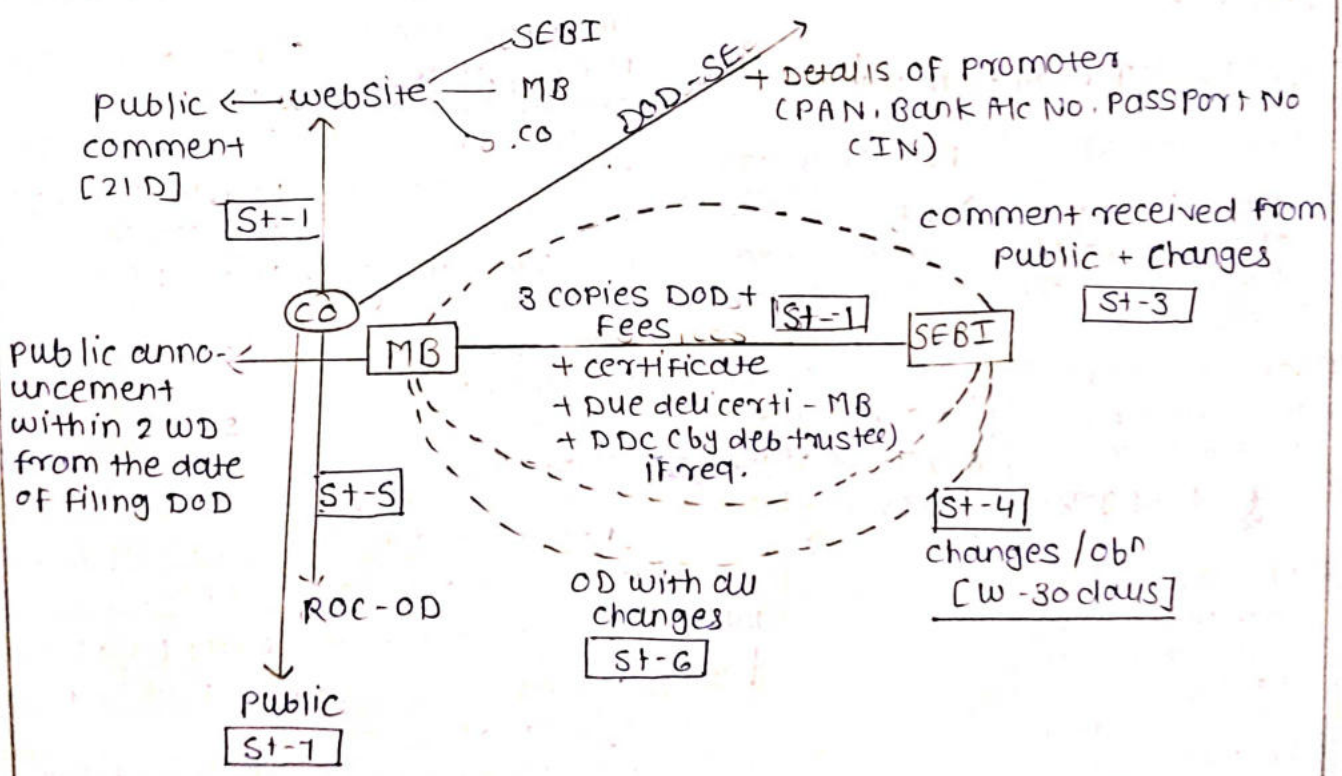 SEBI
public ← website — MB
.CO
comment
[21D]
St-1
DOD-SE.
+ Details of promoter
(PAN, Bank A/c No. Passport No
CIN)
comment received from
public + changes
St-3
CO
3 copies DOD +
Fees
St-1
MB
SEBI
+ certificate
+ Due deli certi - MB
+ DDC (by deb trustee)
if req.
public anno-
uncement
within 2 WD
from the date
of filing DOD
St-5
St-4
changes / obⁿ
[W-30 days]
OD with all
changes
St-6
ROC-OD
public
St-7